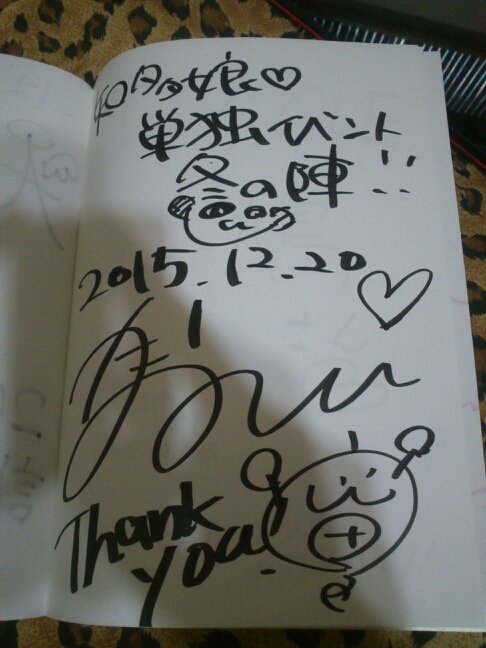 和タタ娘♡
単独イベント
冬の陣!!
2015.12.20
Thank
you.